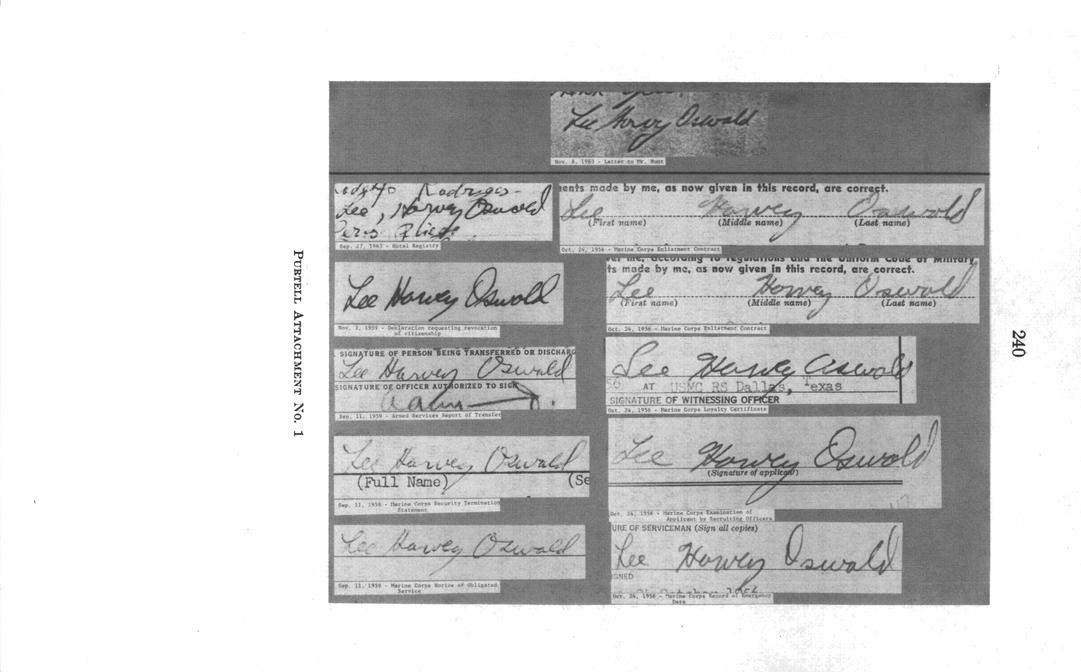 Lee Harvey Oswald
Nov. 8, 1963 - Letter to Mr. Hunt
Lee, Harvey Oswald
Sep. 27, 1963 - Hotel Registry
ents made by me, as now given in this record, are correct.
Lee Harvey Oswald
(First name) (Middle name) (Last name)
Oct. 24, 1956 - Marine Corps Enlistment Contract
Lee Harvey Oswald
Nov. 3, 1959 - Declaration requesting revocation
of citizenship
er me, according to regulations and the Uniform Code of Military
ts made by me, as now given in this record, are correct.
Lee Harvey Oswald
(First name) (Middle name) (Last name)
Oct. 24, 1956 - Marine Corps Enlistment Contract
SIGNATURE OF PERSON BEING TRANSFERRED OR DISCHARG
Lee Harvey Oswald
SIGNATURE OF OFFICER AUTHORIZED TO SIGN
Sep. 11, 1959 - Armed Services Report of Transfer
Lee Harvey Oswald
56 AT USMC RS Dallas, Texas
SIGNATURE OF WITNESSING OFFICER
Oct. 24, 1956 - Marine Corps Loyalty Certificate
Lee Harvey Oswald
(Full Name) (Se
Sep. 11, 1958 - Marine Corps Security Termination
Statement
Lee Harvey Oswald
(Signature of applicant)
Oct. 24, 1956 - Marine Corps Examination of
Applicant by Recruiting Officers
Lee Harvey Oswald
Sep. 11, 1958 - Marine Corps Notice of Obligated
Service
URE OF SERVICEMAN (Sign all copies)
Lee Harvey Oswald
IGNED
Oct. 24, 1956 - Marine Corps Record of Emergency
Data
PURTELL ATTACHMENT NO. 1
240